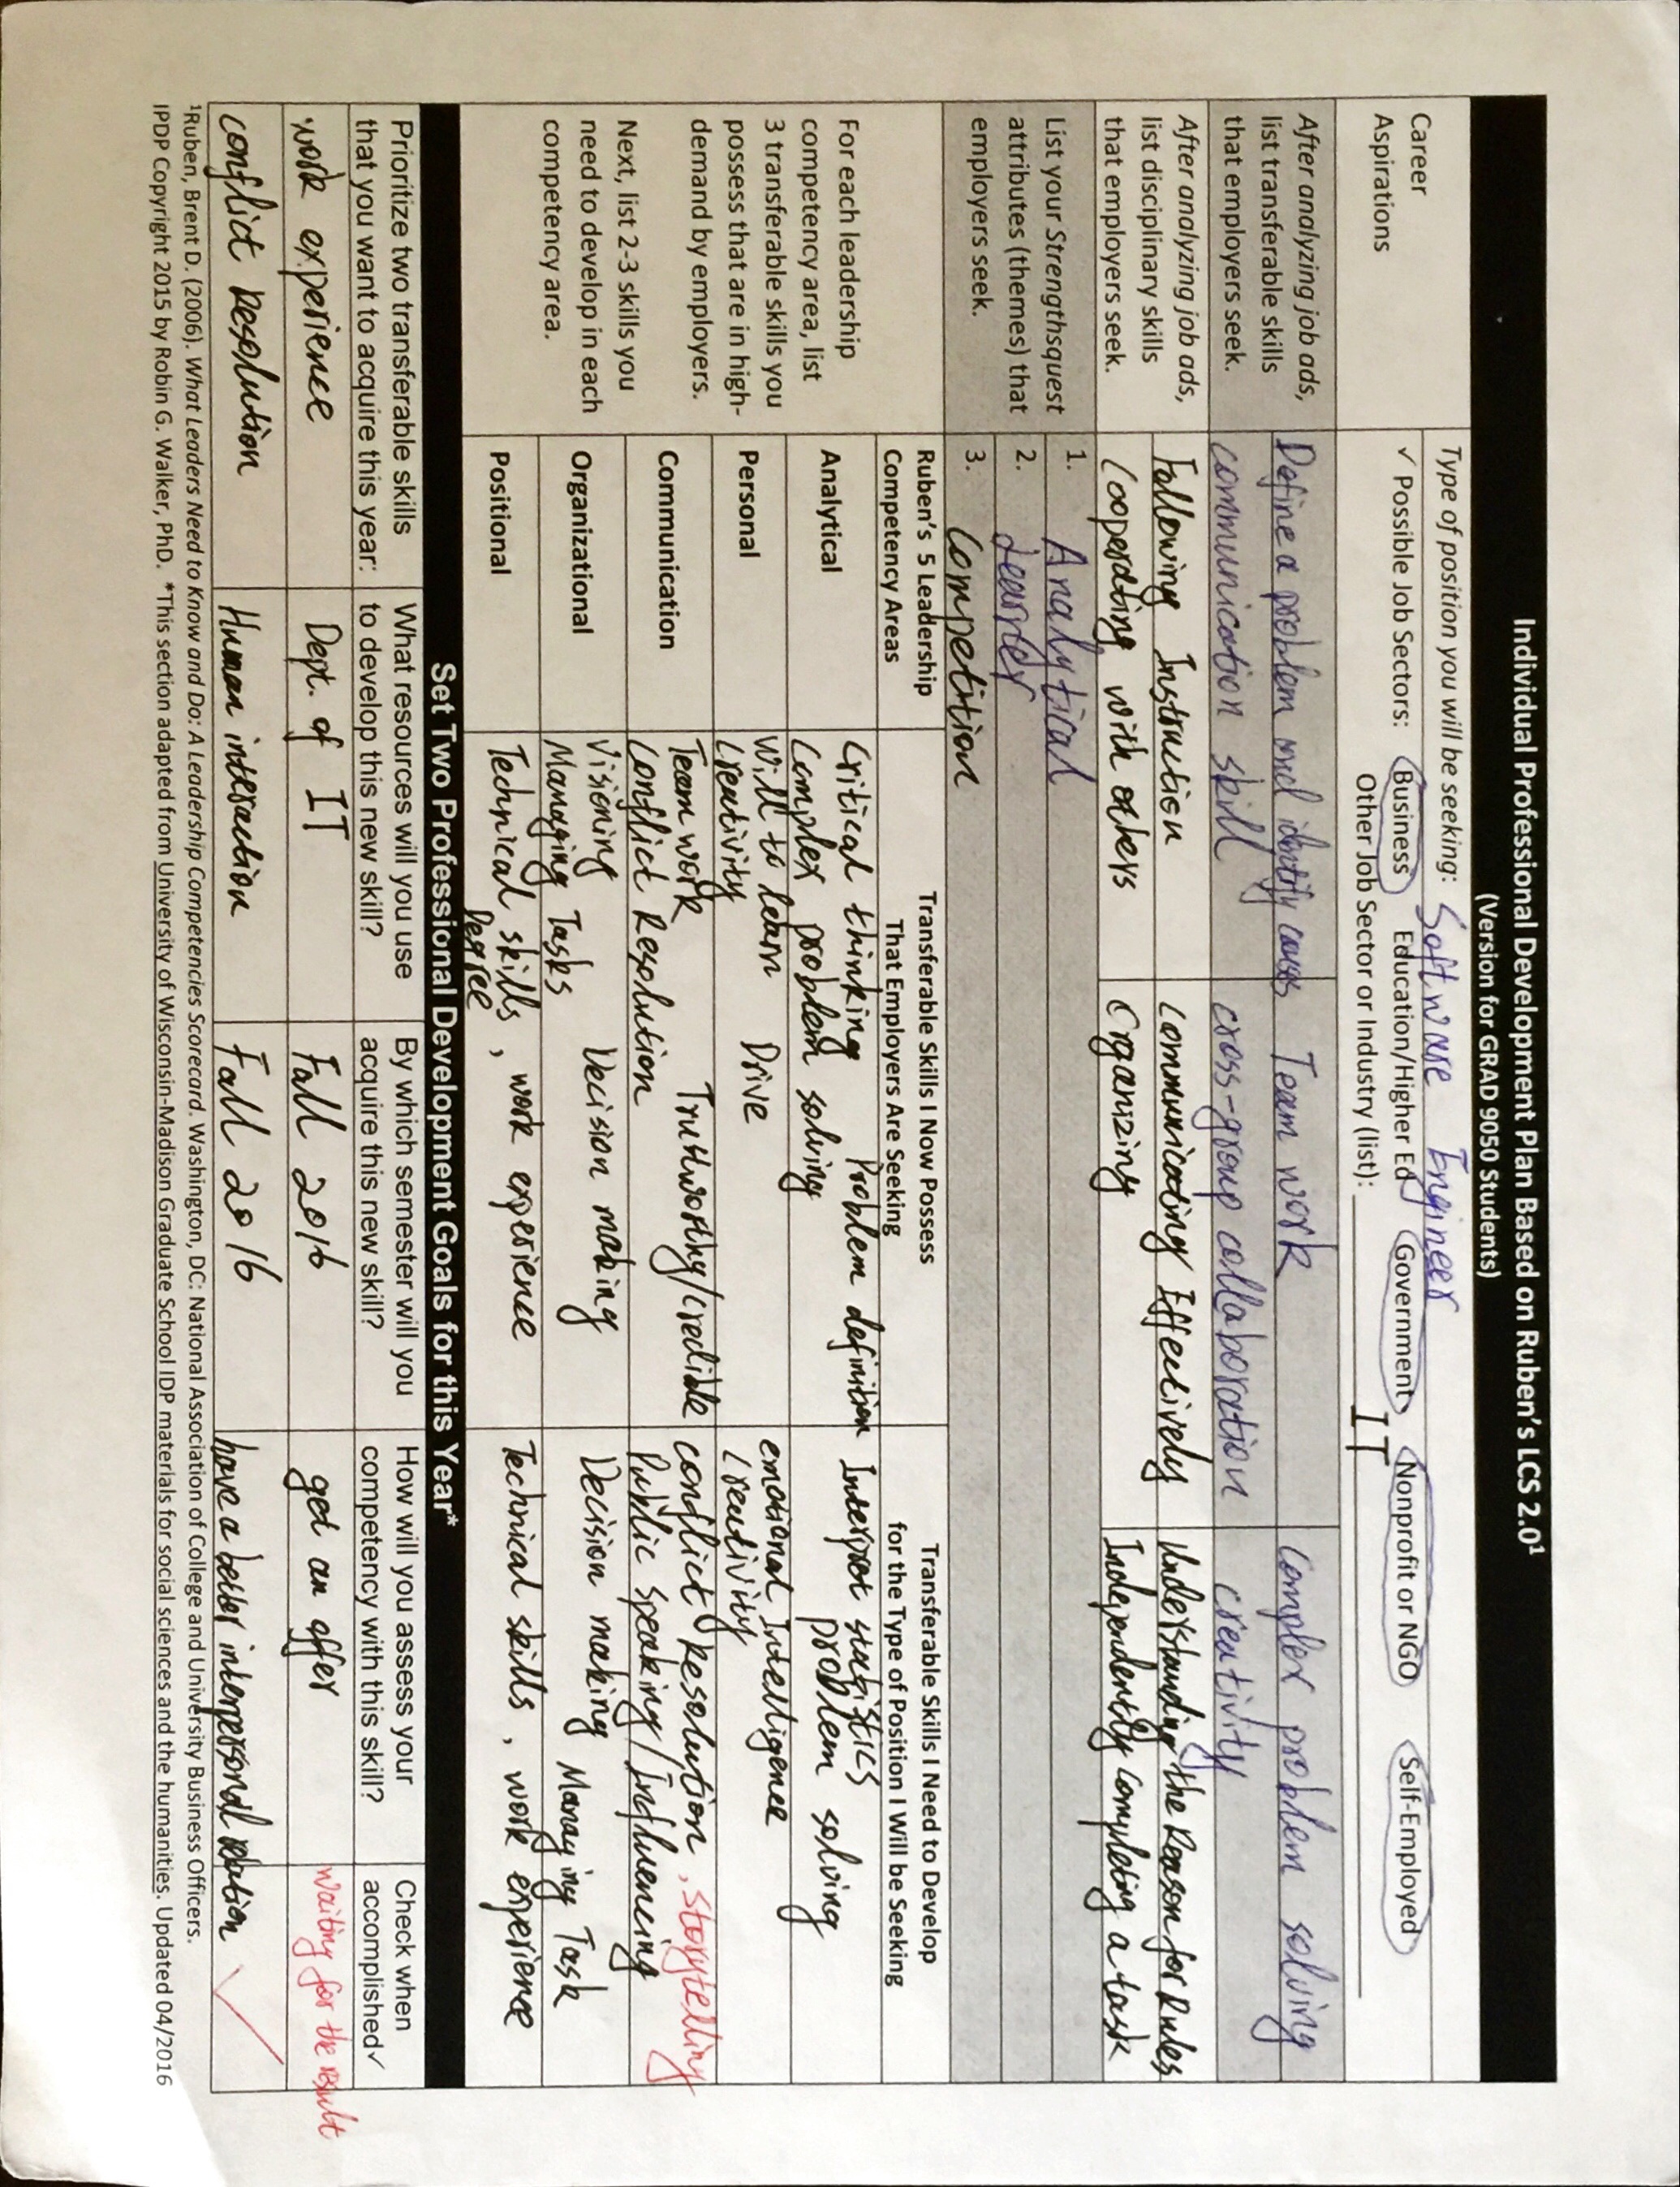 Individual Professional Development Plan Based on Ruben's LCS 2.0¹
(Version for GRAD 9050 Students)
Career
Aspirations
Type of position you will be seeking: Software Engineer
✓ Possible Job Sectors: Business Education/Higher Ed Government Nonprofit or NGO Self-Employed
Other Job Sector or Industry (list): IT
After analyzing job ads,
list transferable skills
that employers seek.
Define a problem and identify causes
Team work
Complex problem solving
communication skill
cross-group collaboration
creativity
After analyzing job ads,
list disciplinary skills
that employers seek.
Following Instruction
Communicating Effectively
Understanding the Reason for Rules
Cooperating with others
Organizing
Independently Completing a task
List your Strengthsquest
attributes (themes) that
employers seek.
1. Analytical
2. Learner
3. Competition
For each leadership
competency area, list
3 transferable skills you
possess that are in high-
demand by employers.
Next, list 2-3 skills you
need to develop in each
competency area.
Ruben's 5 Leadership
Competency Areas
Transferable Skills I Now Possess
That Employers Are Seeking
Transferable Skills I Need to Develop
for the Type of Position I Will be Seeking
Analytical
Critical thinking Problem definition
Complex problem solving
Interpret statistics
problem solving
Personal
Will to learn Drive
Creativity
emotional Intelligence
Creativity
Communication
Team work Trustworthy/credible
Conflict Resolution
conflict Resolution, storytelling
Public speaking/Influencing
Organizational
Visioning Decision making
Managing Tasks
Decision making Managing Task
Positional
Technical skills, work experience
Degree
Technical skills, work experience
Set Two Professional Development Goals for this Year*
Prioritize two transferable skills
that you want to acquire this year:
What resources will you use
to develop this new skill?
By which semester will you
acquire this new skill?
How will you assess your
competency with this skill?
Check when
accomplished✓
work experience
Dept. of IT
Fall 2016
get an offer
waiting for the result
conflict Resolution
Human interaction
Fall 2016
have a better interpersonal relation
✓
¹Ruben, Brent D. (2006). What Leaders Need to Know and Do: A Leadership Competencies Scorecard. Washington, DC: National Association of College and University Business Officers.
IPDP Copyright 2015 by Robin G. Walker, PhD. *This section adapted from University of Wisconsin-Madison Graduate School IDP materials for social sciences and the humanities. Updated 04/2016